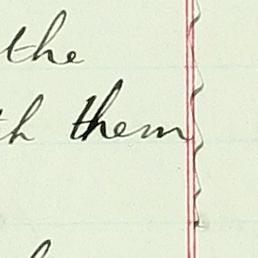 the
th them